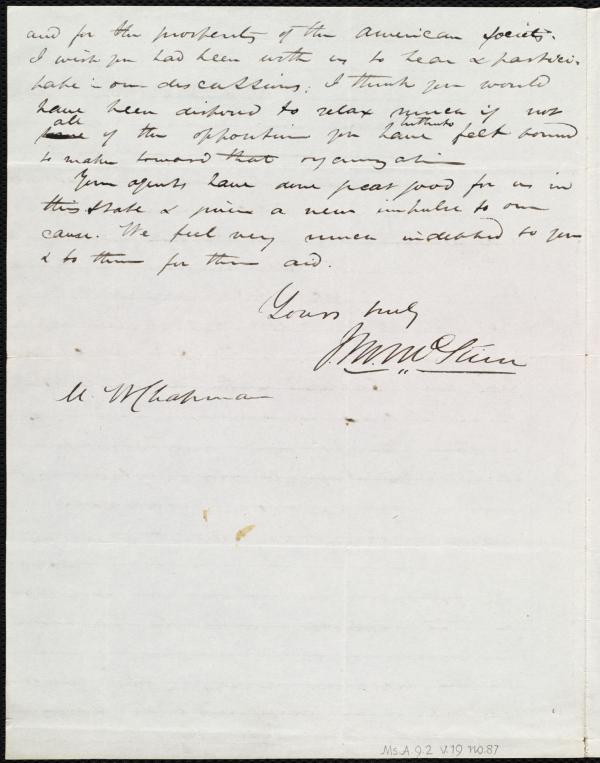 and for the prosperity of the American Society.
I wish you had been with us to hear & partici-
pate in our discussions; I think you would
have been disposed to relax much if not
all of the opposition you have hitherto felt bound
to make toward that organization
Your agents have done great good for us in
this State & given a new impulse to our
cause. We feel very much indebted to you
& to them for their aid.
Yours truly
J. M. McKim
M. W. Chapman
Ms. A. 9. 2 V. 19 no. 87